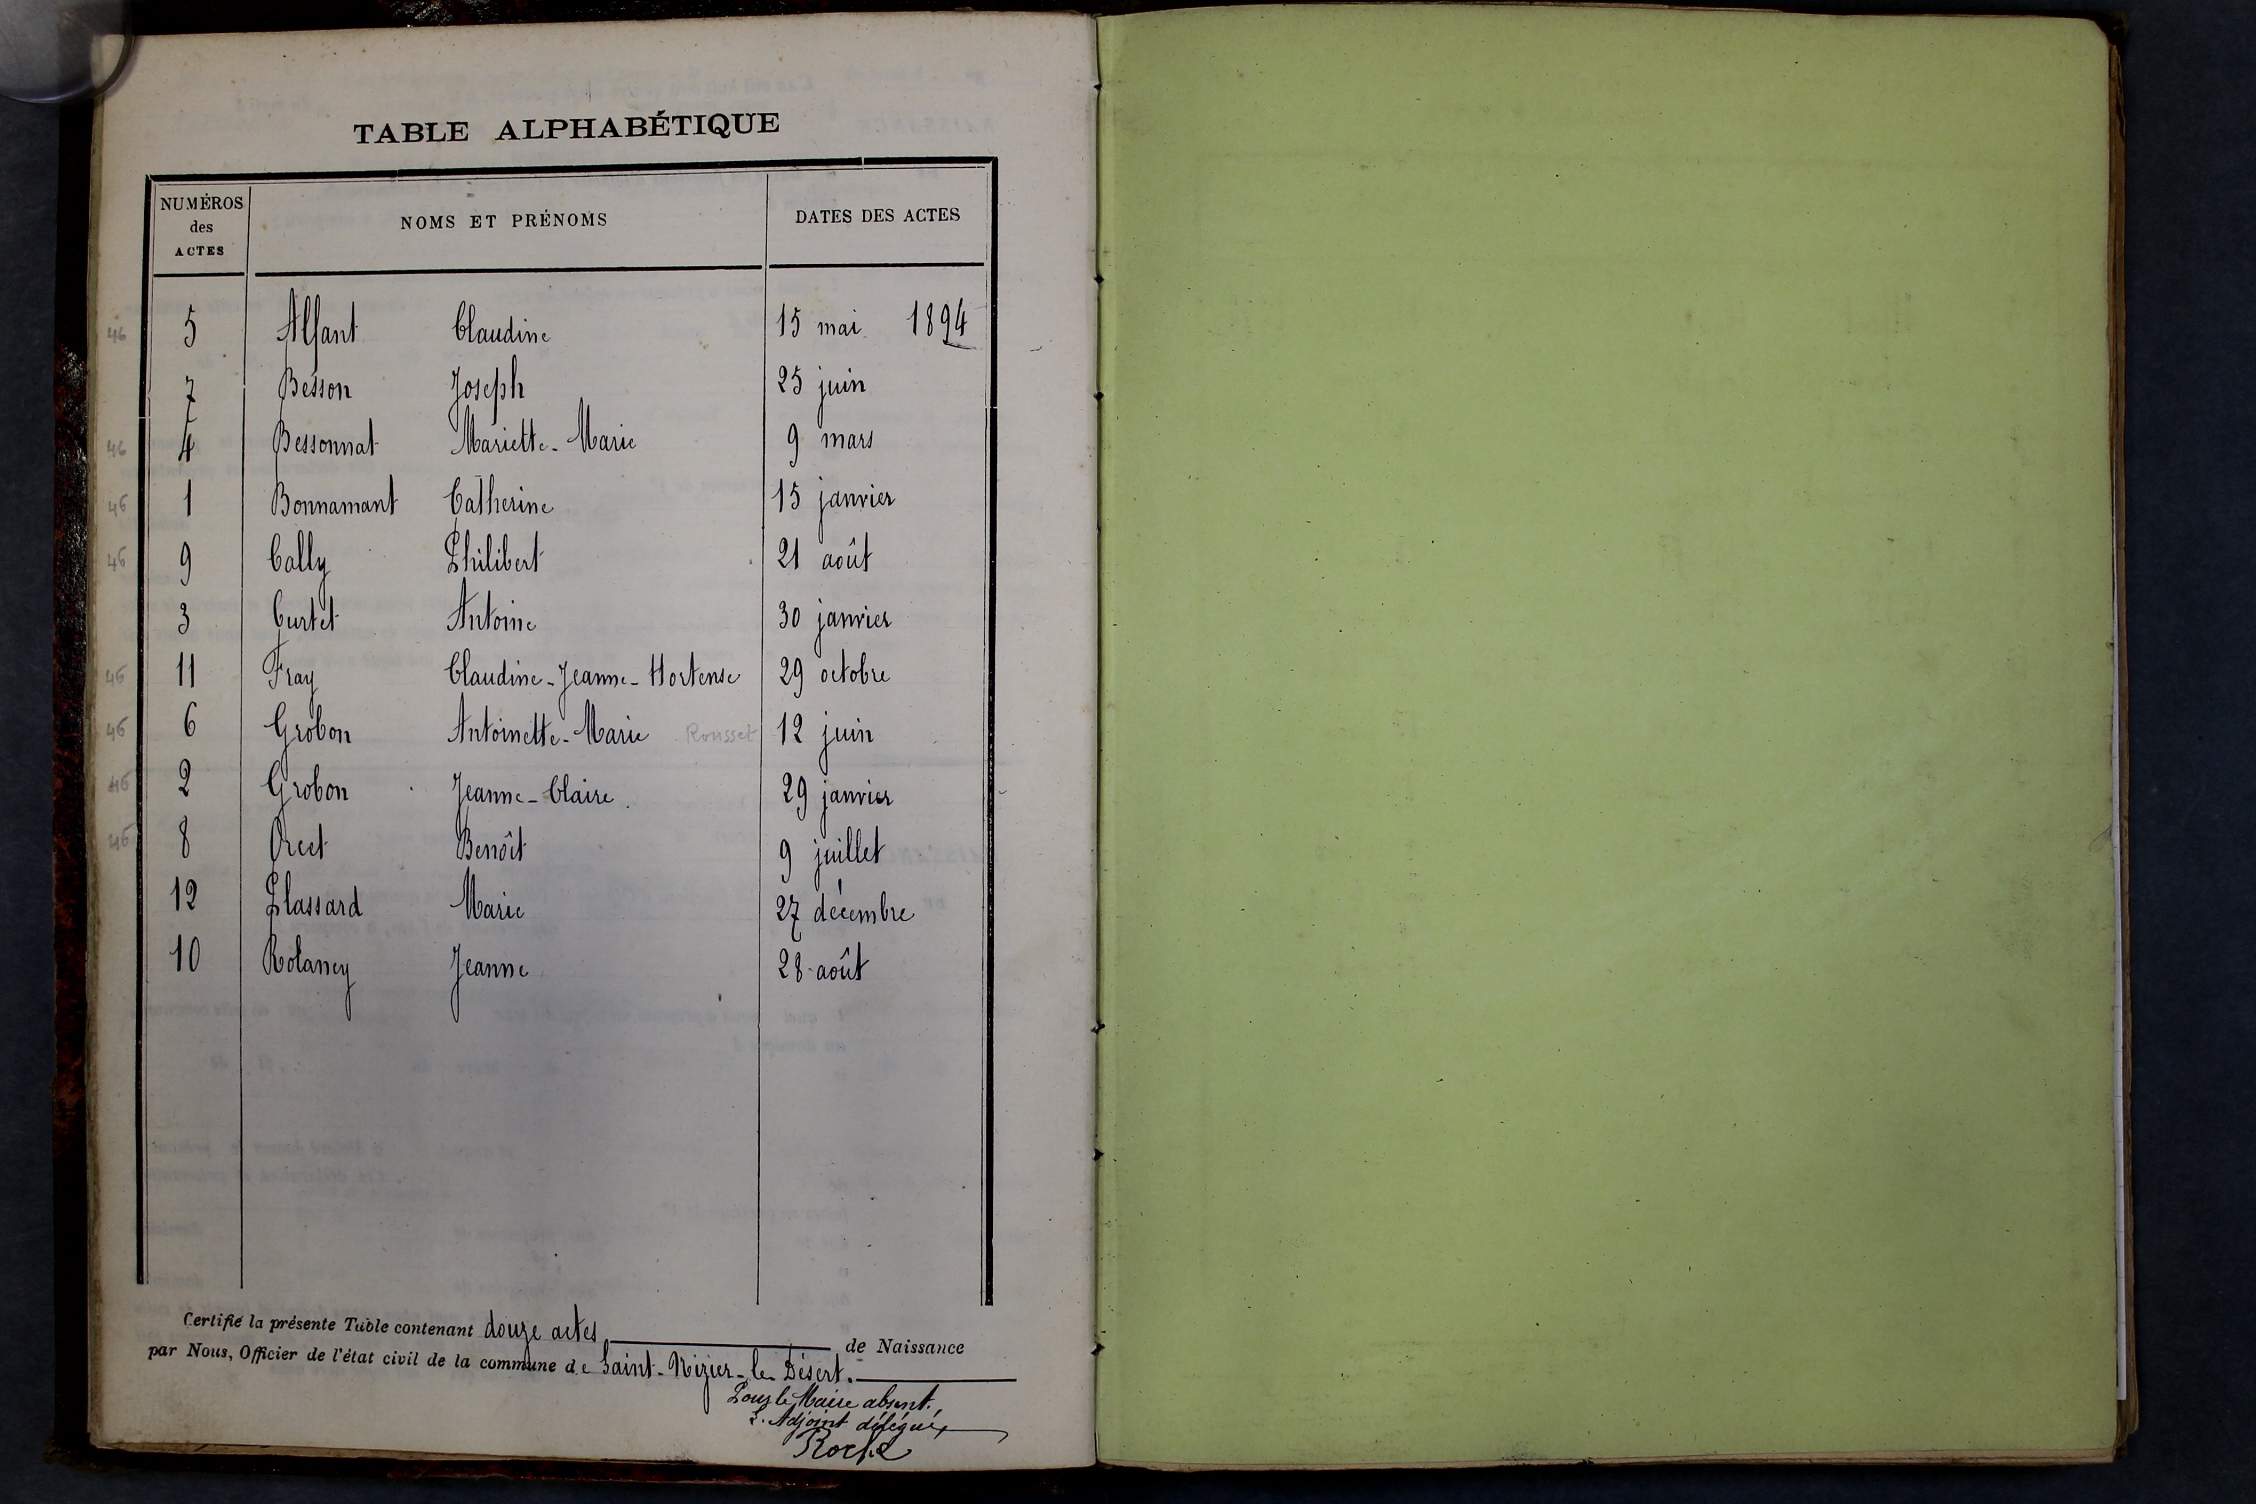 TABLE ALPHABÉTIQUE
NUMÉROS des ACTES NOMS ET PRÉNOMS DATES DES ACTES
46 5 Alfant Claudine 15 mai 1894
7 Besson Joseph 25 juin
46 4 Bessonnat Mariette-Marie 9 mars
46 1 Bonnamant Catherine 15 janvier
46 9 Cally Philibert 21 août
3 Curtet Antoine 30 janvier
46 11 Fray Claudine-Jeanne-Hortense 29 octobre
46 6 Grobon Antoinette-Marie Rousset 12 juin
46 2 Grobon Jeanne-Claire. 29 janvier
46 8 Orcet Benoît 9 juillet
12 Plassard Marie 27 décembre
10 Rolancy Jeanne 28 août
Certifié la présente Table contenant douze actes de Naissance
par Nous, Officier de l'état civil de la commune de Saint-Nizier-le-Désert.
Pour le Maire absent,
L'Adjoint délégué,
Roche